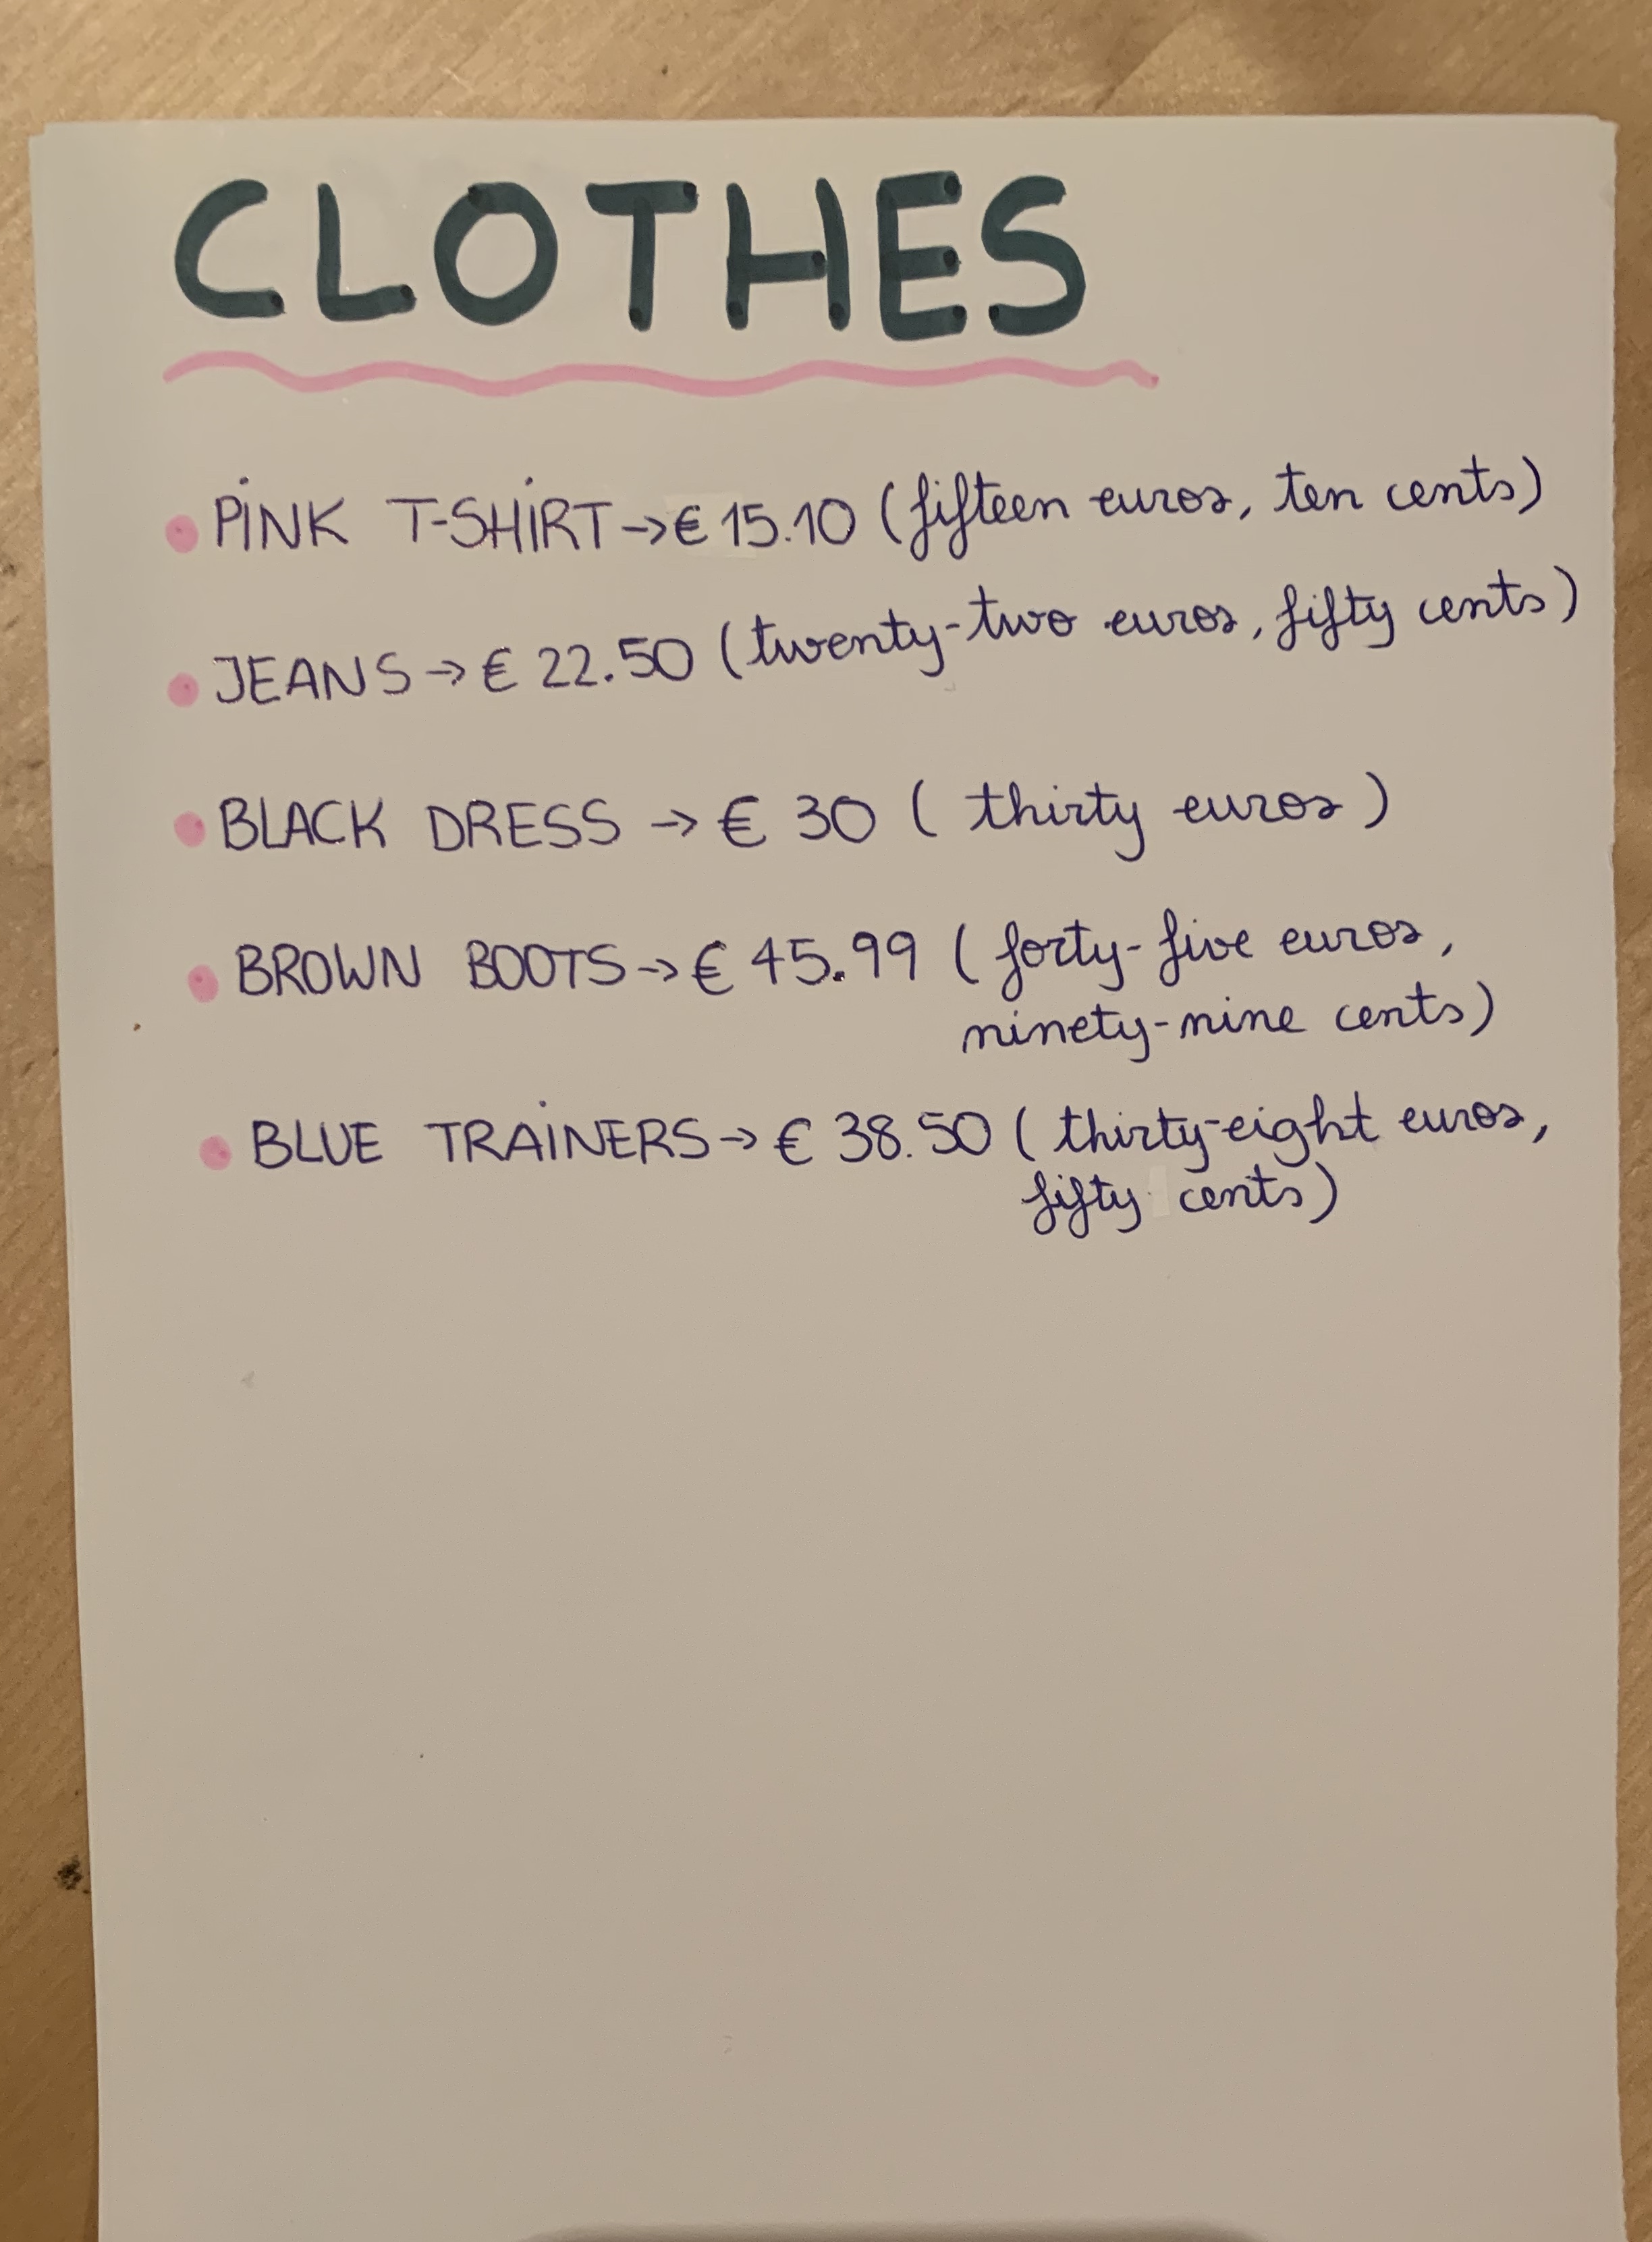 CLOTHES
PINK T-SHIRT → € 15.10 (fifteen euros, ten cents)
JEANS → € 22.50 (twenty-two euros, fifty cents)
BLACK DRESS → € 30 (thirty euros)
BROWN BOOTS → € 45.99 (forty-five euros,
ninety-nine cents)
BLUE TRAINERS → € 38.50 (thirty-eight euros,
fifty cents)